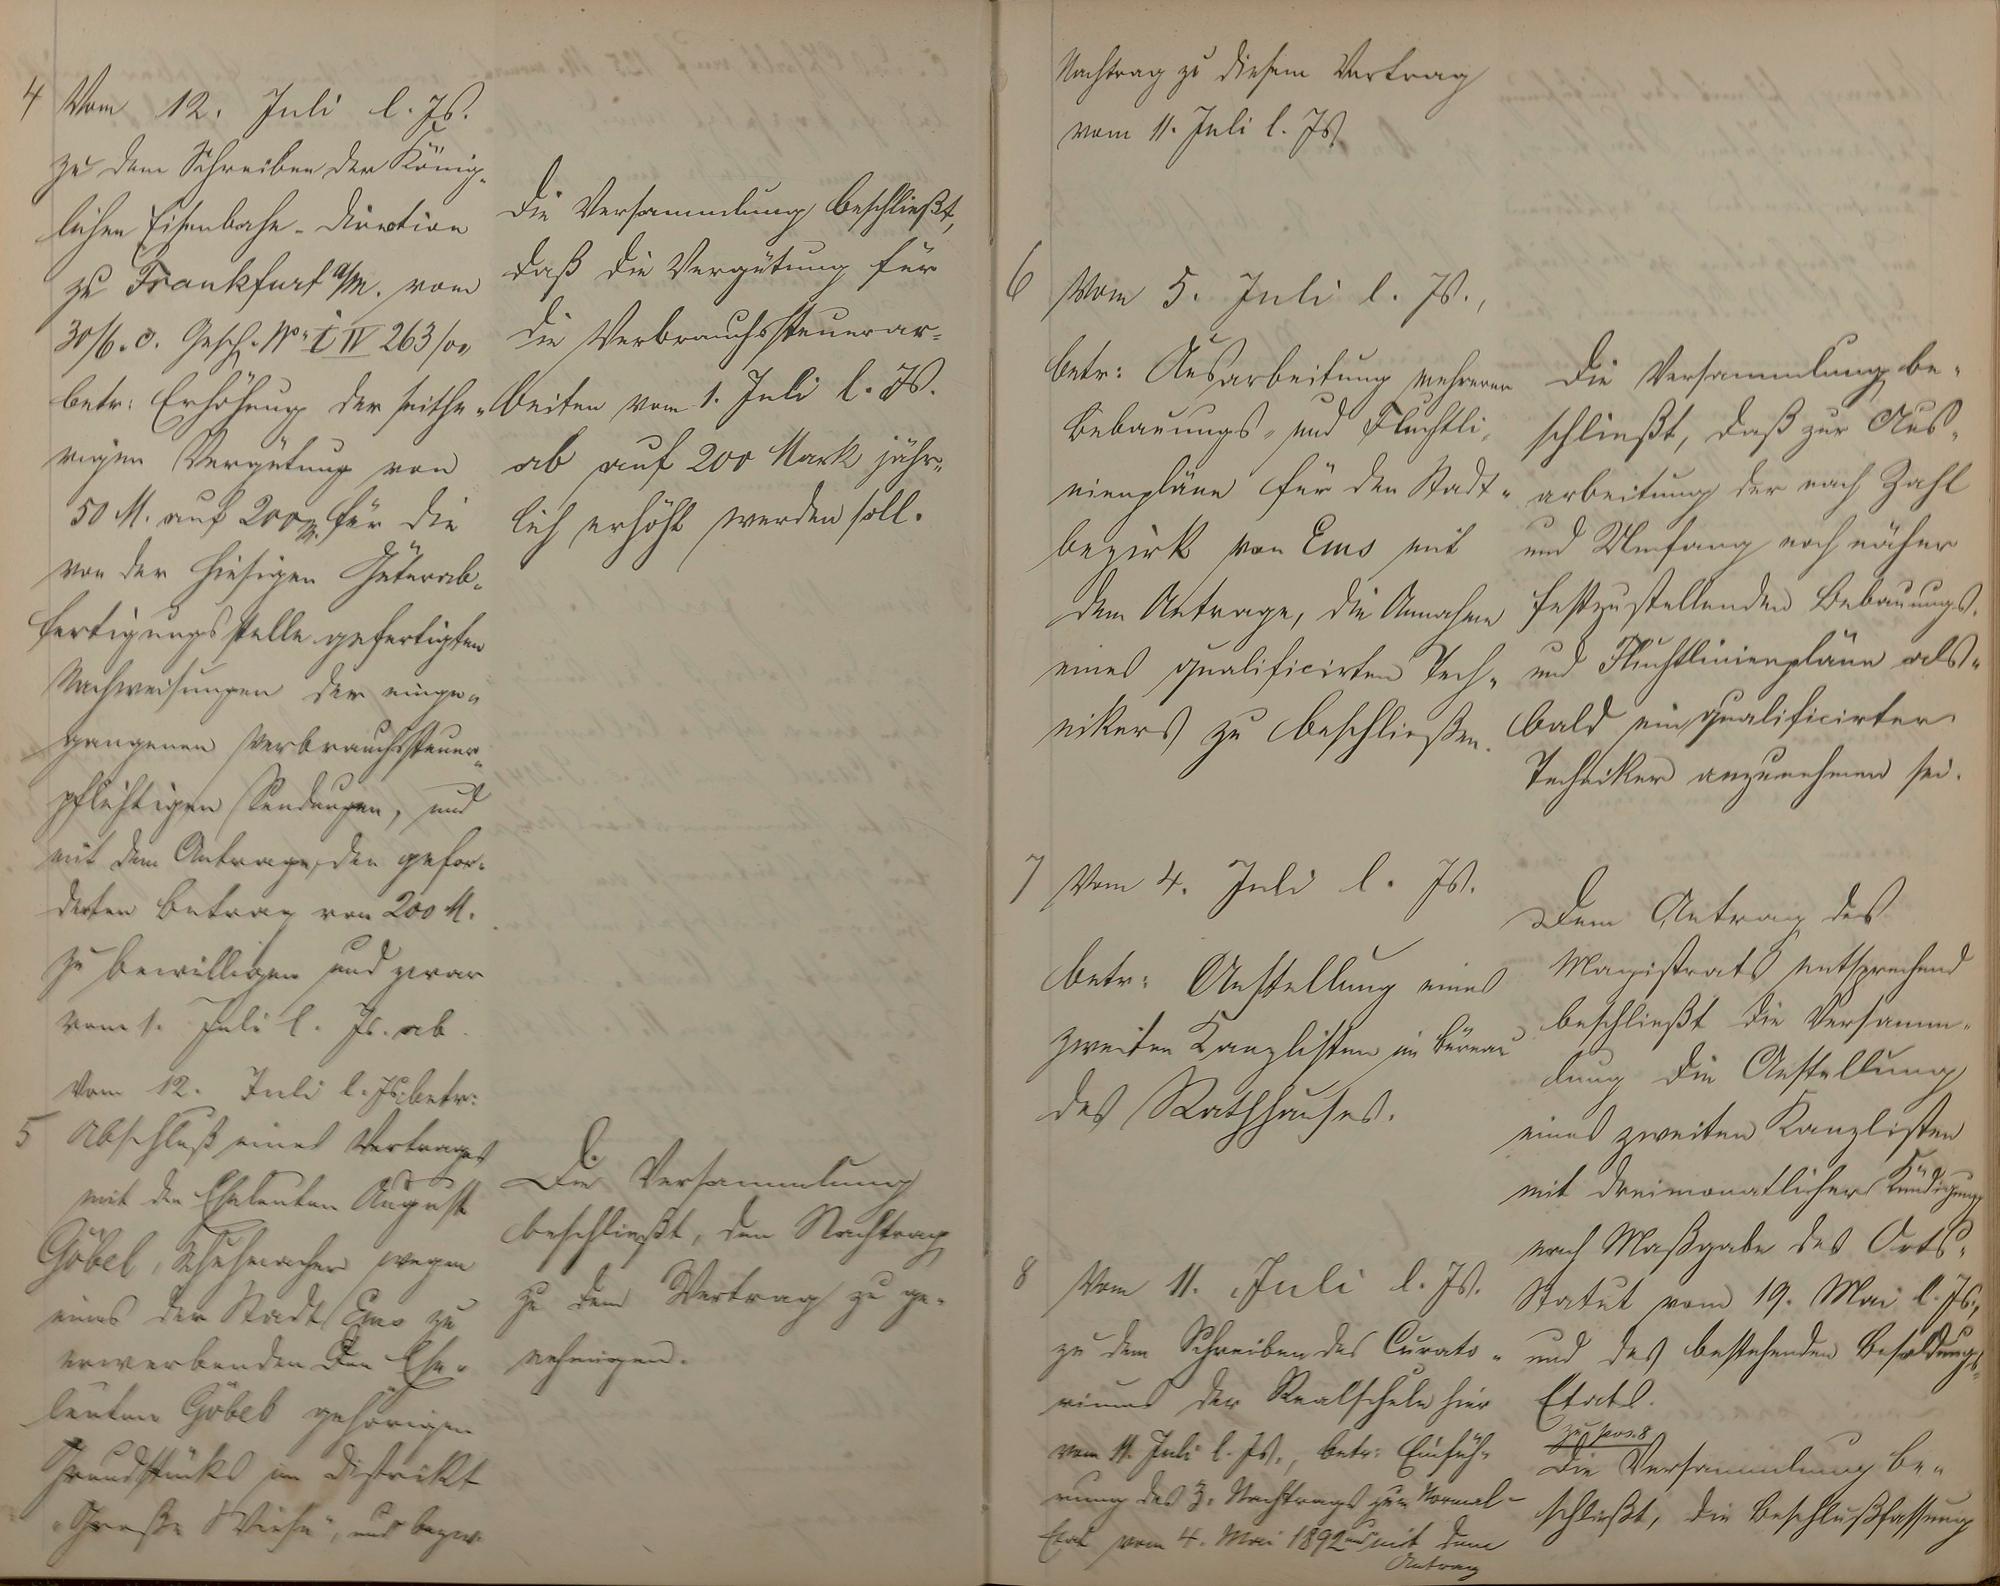 4 Vom 12. Juli l. Js.
zu dem Schreiben der König-
lichen Eisenbahn-Direction
zu Frankfurt a/M. vom
30/6. c. Gesch. No. I IV 263/00
betr: Erhöhung der seithe-
rigen Vergütung von
50 M. auf 200 M. für die
von der hiesigen Güterab-
fertigungsstelle gefertigten
Nachweisungen der einge-
gangenen verbrauchssteuer-
pflichtigen Sendungen, und
mit dem Antrage, den gefor-
derten Betrag von 200 M.
zu bewilligen und zwar
vom 1. Juli l. Js. ab.
Vom 12. Juli l. Js. betr:
5 Abschluß eines Vertrages
mit den Eheleuten August
Göbel, Schuhmacher wegen
eines der Stadt Ems zu
erwerbenden den Ehe-
leuten Göbel gehörigen
Grundstücks im Distrikt
„Große Wiese“, und bezw.
Die Versammlung beschließt,
daß die Vergütung für
die Verbrauchssteuerar-
beiten vom 1. Juli l. Js.
ab auf 200 Mark jähr-
lich erhöht werden soll.
Die Versammlung
beschließt, den Nachtrag
zu dem Vertrag zu ge-
nehmigen.
Nachtrag zu diesem Vertrag
vom 11. Juli l. Js.
6 Vom 5. Juli l. Js.,
betr: Ausarbeitung mehrerer
Bebauungs- und Fluchtli-
nienpläne für den Stadt-
bezirk von Ems mit
dem Antrage, die Annahme
eines qualificirten Tech-
nikers zu beschließen.
Die Versammlung be-
schließt, daß zur Aus-
arbeitung der nach Zahl
und Umfang noch näher
festzustellenden Bebauungs-
und Fluchtlinienpläne als-
bald ein qualificirter
Techniker anzunehmen sei.
7 Vom 4. Juli l. Js.
betr: Anstellung eines
zweiten Kanzlisten im Büreau
des Rathhauses.
Dem Antrag des
Magistrats entsprechend
beschließt die Versamm-
lung die Anstellung
eines zweiten Kanzlisten
mit dreimonatlicher Kündigung
nach Maßgabe des Orts-
Statut vom 19. Mai l. Js.,
und des bestehenden Besoldungs-
Etats.
8 Vom 11. Juli l. Js.
zu dem Schreiben des Curato-
riums der Realschule hier
vom 11. Juli l. Js., betr: Einfüh-
rung des 3. Nachtrags zum Normal-
Etat vom 4. Mai 1892 und mit dem
Antrag
zu pos. 8
Die Versammlung be-
schließt, die Beschlußfassung